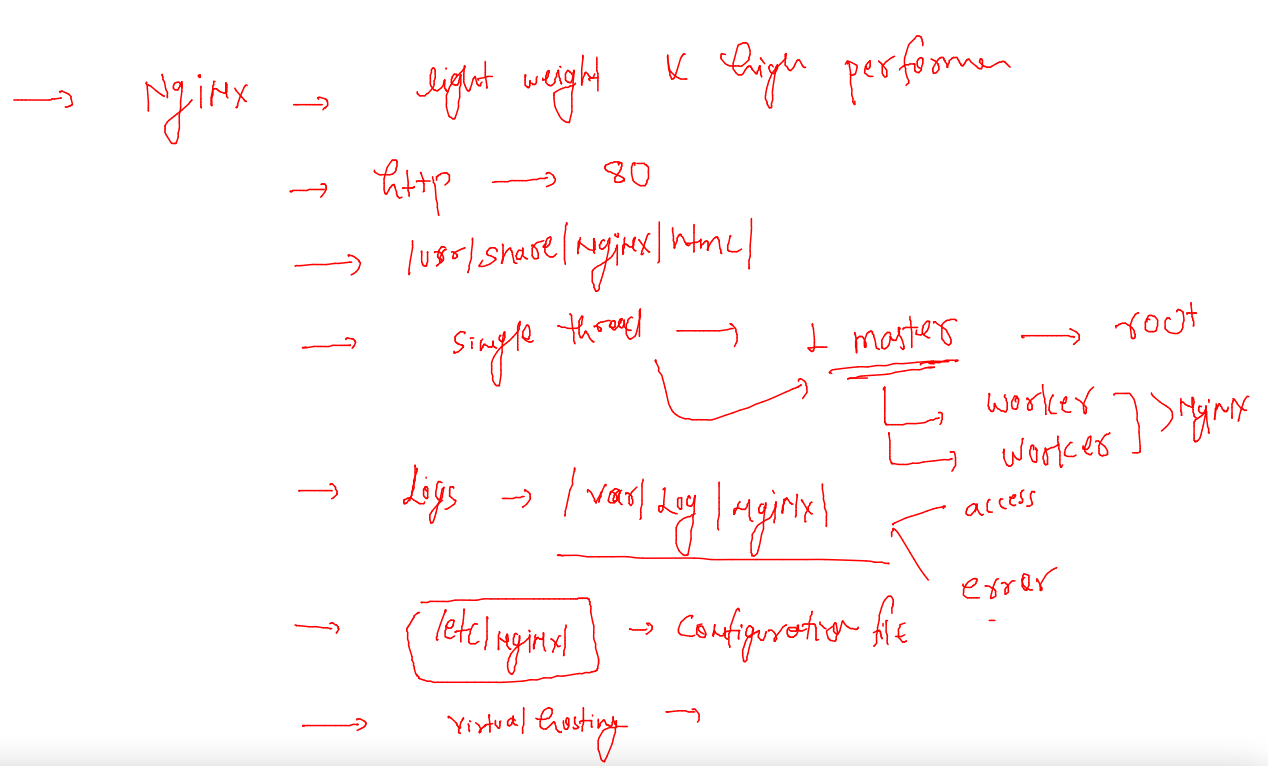 → Nginx → light weight & high performen
→ http → 80
→ /usr/share/Nginx/html/
→ single thread → 1 master → root
→ worker
→ worker > Nginx
→ Logs → /var/log/nginx/
access
error
→ /etc/nginx/ → Configuration file
→ virtual hosting →